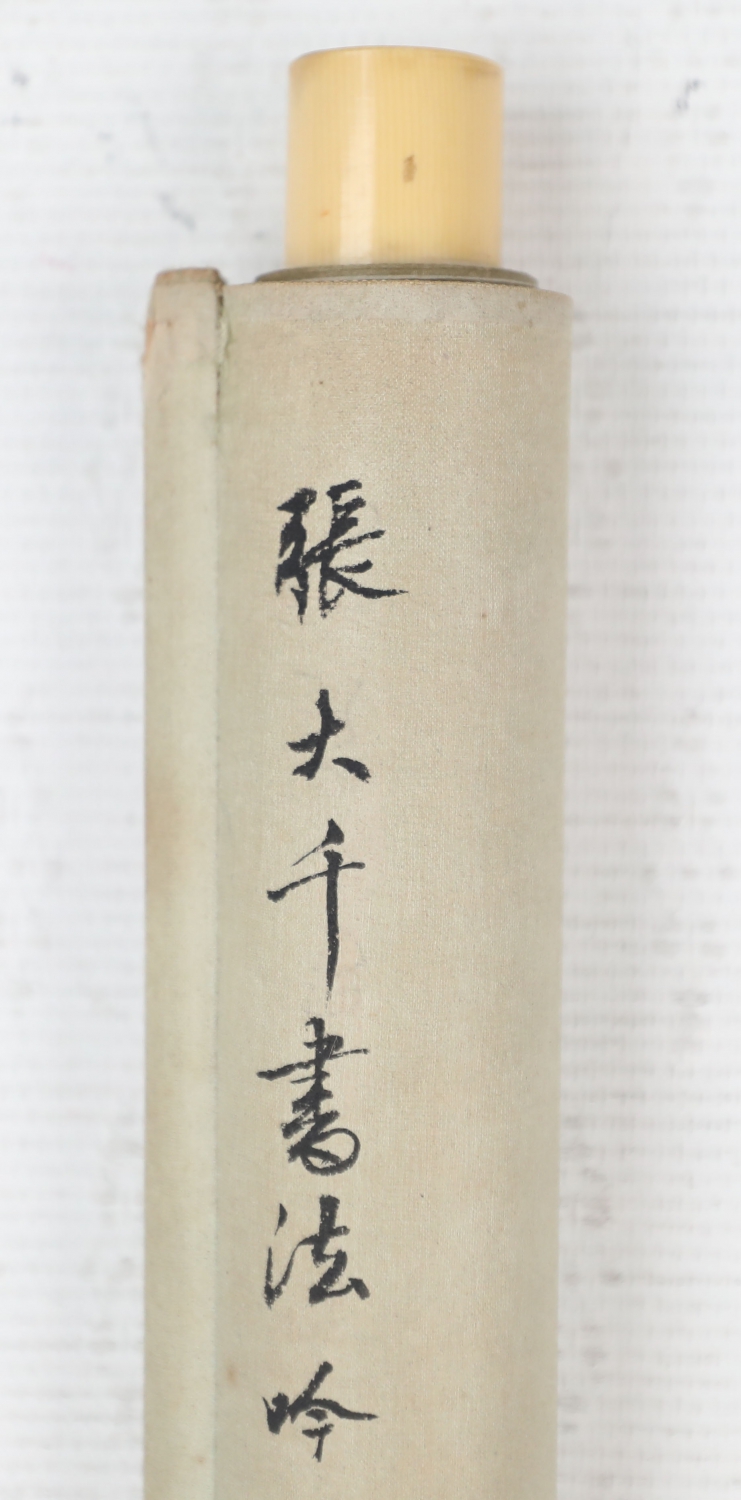 張大千書法吟